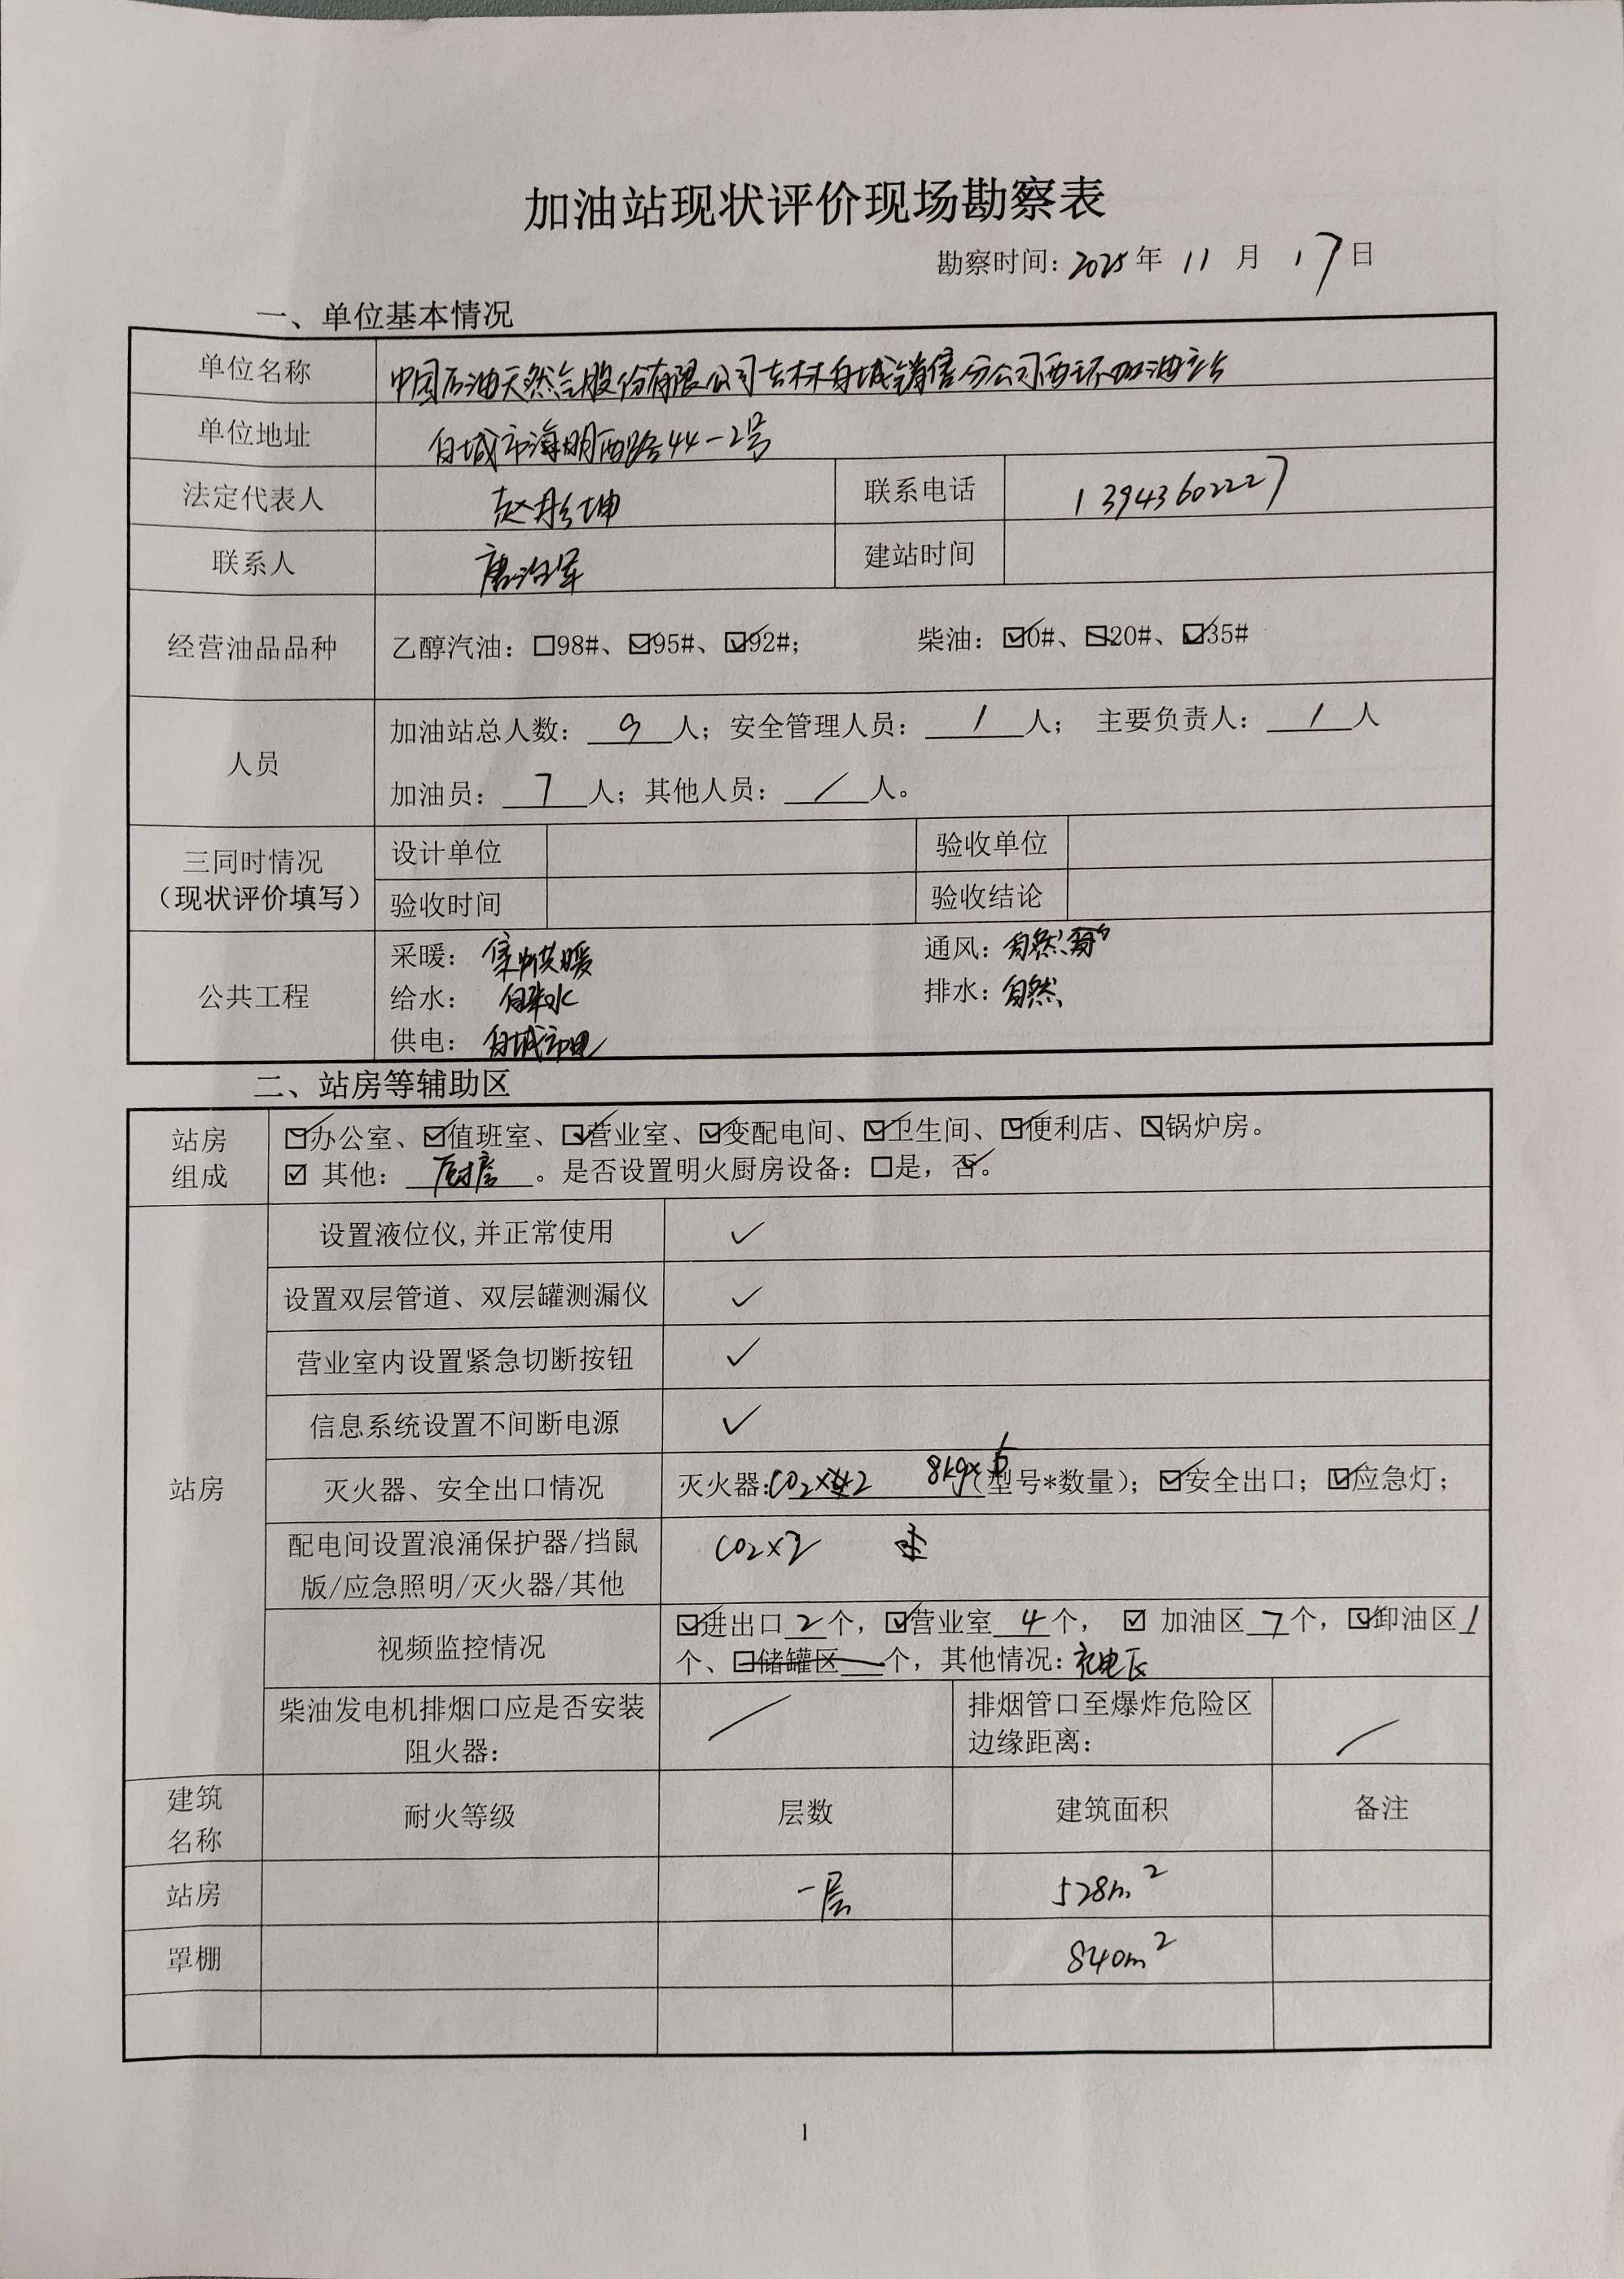 加油站现状评价现场勘察表
勘察时间：2025年 11 月 17日
一、单位基本情况
单位名称 中国石油天然气股份有限公司吉林白城销售分公司西环加油站
单位地址 白城市海明西路44-2号
法定代表人 赵彤坤 联系电话 13943602227
联系人 建站时间
经营油品品种 乙醇汽油：☐98#、☑95#、☑92#； 柴油：☑0#、☑20#、☑35#
加油站总人数： 9 人；安全管理人员： 1 人； 主要负责人： 1 人
人员
加油员： 7 人；其他人员： / 人。
三同时情况 设计单位 验收单位
（现状评价填写） 验收时间 验收结论
采暖： 集中供暖 通风：自然
公共工程 给水： 自来水 排水：自然
供电： 白城市电
二、站房等辅助区
站房 ☑办公室、☑值班室、☑营业室、☑变配电间、☑卫生间、☑便利店、☑锅炉房。
组成 ☑ 其他： 厨房 。是否设置明火厨房设备：☐是，否✓。
设置液位仪,并正常使用 ✓
设置双层管道、双层罐测漏仪 ✓
营业室内设置紧急切断按钮 ✓
信息系统设置不间断电源 ✓
站房 灭火器、安全出口情况 灭火器:CO2×2 8kg×6(型号*数量)；☑安全出口；☑应急灯；
配电间设置浪涌保护器/挡鼠 CO2×2
版/应急照明/灭火器/其他
视频监控情况 ☑进出口 2 个，☑营业室 4 个， ☑ 加油区 7 个，☑卸油区 1
个、☐储罐区 个，其他情况：充电区
柴油发电机排烟口应是否安装 / 排烟管口至爆炸危险区 /
阻火器： 边缘距离：
建筑 耐火等级 层数 建筑面积 备注
名称
站房 一层 528m²
罩棚 840m²
1